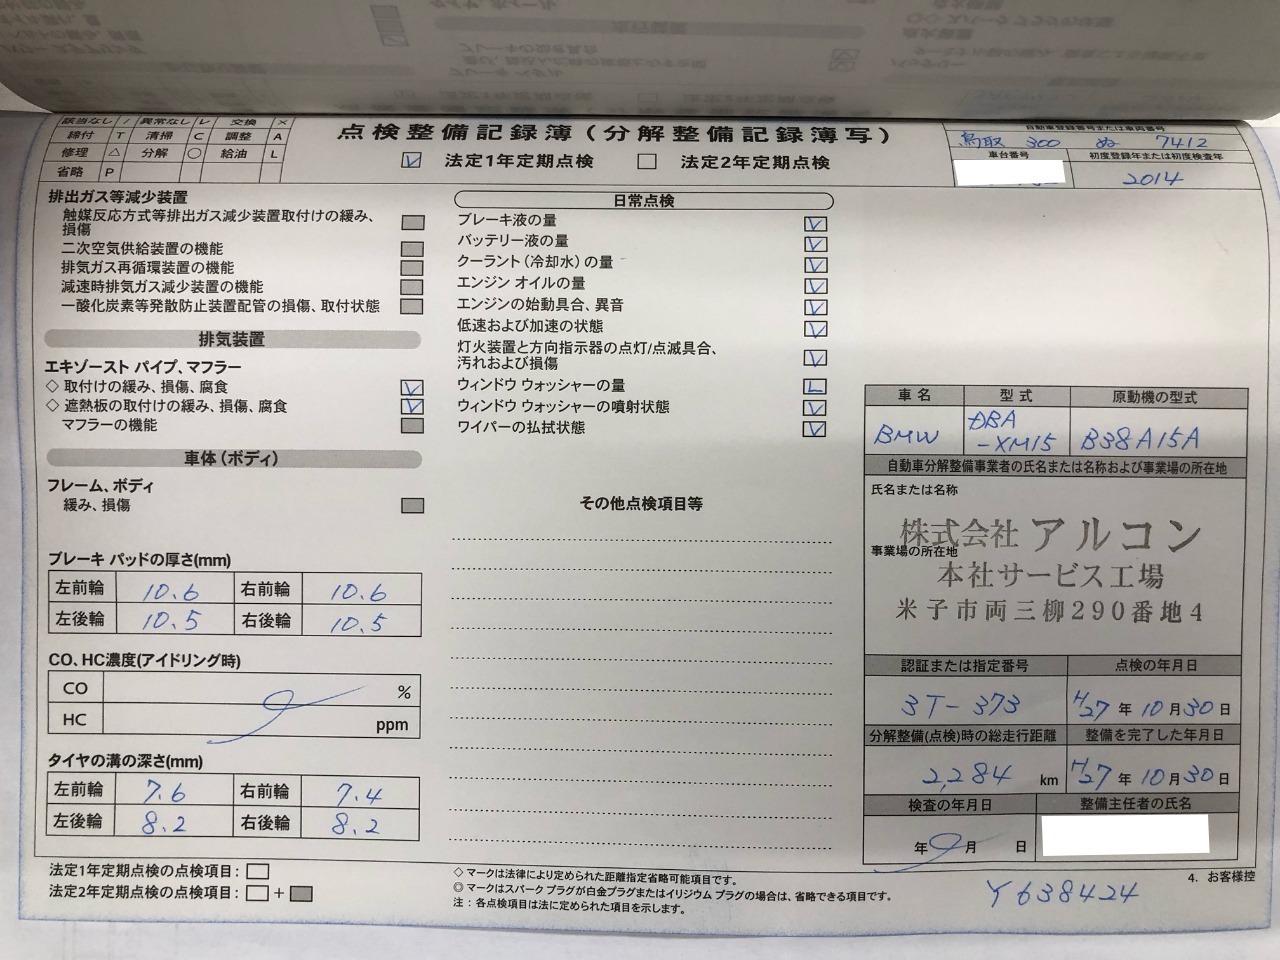 該当なし / 異常なし レ 交換 ×
締付 T 清掃 C 調整 A
修理 △ 分解 ○ 給油 L
省略 P
点検整備記録簿(分解整備記録簿写)
レ 法定1年定期点検 法定2年定期点検
自動車登録番号または車両番号
鳥取 300 ぬ 7412
車台番号 初度登録年または初度検査年
2014
排出ガス等減少装置
触媒反応方式等排出ガス減少装置取付けの緩み、
損傷
二次空気供給装置の機能
排気ガス再循環装置の機能
減速時排気ガス減少装置の機能
一酸化炭素等発散防止装置配管の損傷、取付状態
排気装置
エキゾースト パイプ、マフラー
◇ 取付けの緩み、損傷、腐食 レ
◇ 遮熱板の取付けの緩み、損傷、腐食 レ
マフラーの機能
車体(ボディ)
フレーム、ボディ
緩み、損傷
ブレーキ パッドの厚さ(mm)
左前輪 10.6 右前輪 10.6
左後輪 10.5 右後輪 10.5
CO、HC濃度(アイドリング時)
CO %
HC ppm
タイヤの溝の深さ(mm)
左前輪 7.6 右前輪 7.4
左後輪 8.2 右後輪 8.2
法定1年定期点検の点検項目:
法定2年定期点検の点検項目: +
日常点検
ブレーキ液の量 レ
バッテリー液の量 レ
クーラント(冷却水)の量 レ
エンジン オイルの量 レ
エンジンの始動具合、異音 レ
低速および加速の状態 レ
灯火装置と方向指示器の点灯/点滅具合、
汚れおよび損傷 レ
ウィンドウ ウォッシャーの量 L
ウィンドウ ウォッシャーの噴射状態 レ
ワイパーの払拭状態 レ
その他点検項目等
◇ マークは法律により定められた距離指定省略可能項目です。
◎ マークはスパーク プラグが白金プラグまたはイリジウム プラグの場合は、省略できる項目です。
注 : 各点検項目は法に定められた項目を示します。
車名 型式 原動機の型式
BMW DBA-XM15 B38A15A
自動車分解整備事業者の氏名または名称および事業場の所在地
氏名または名称
株式会社 アルコン
事業場の所在地
本社サービス工場
米子市両三柳290番地4
認証または指定番号 点検の年月日
3T-373 H27 年 10 月 30 日
分解整備(点検)時の総走行距離 整備を完了した年月日
2,284 km H27 年 10 月 30 日
検査の年月日 整備主任者の氏名
年 月 日
4. お客様控
Y638424